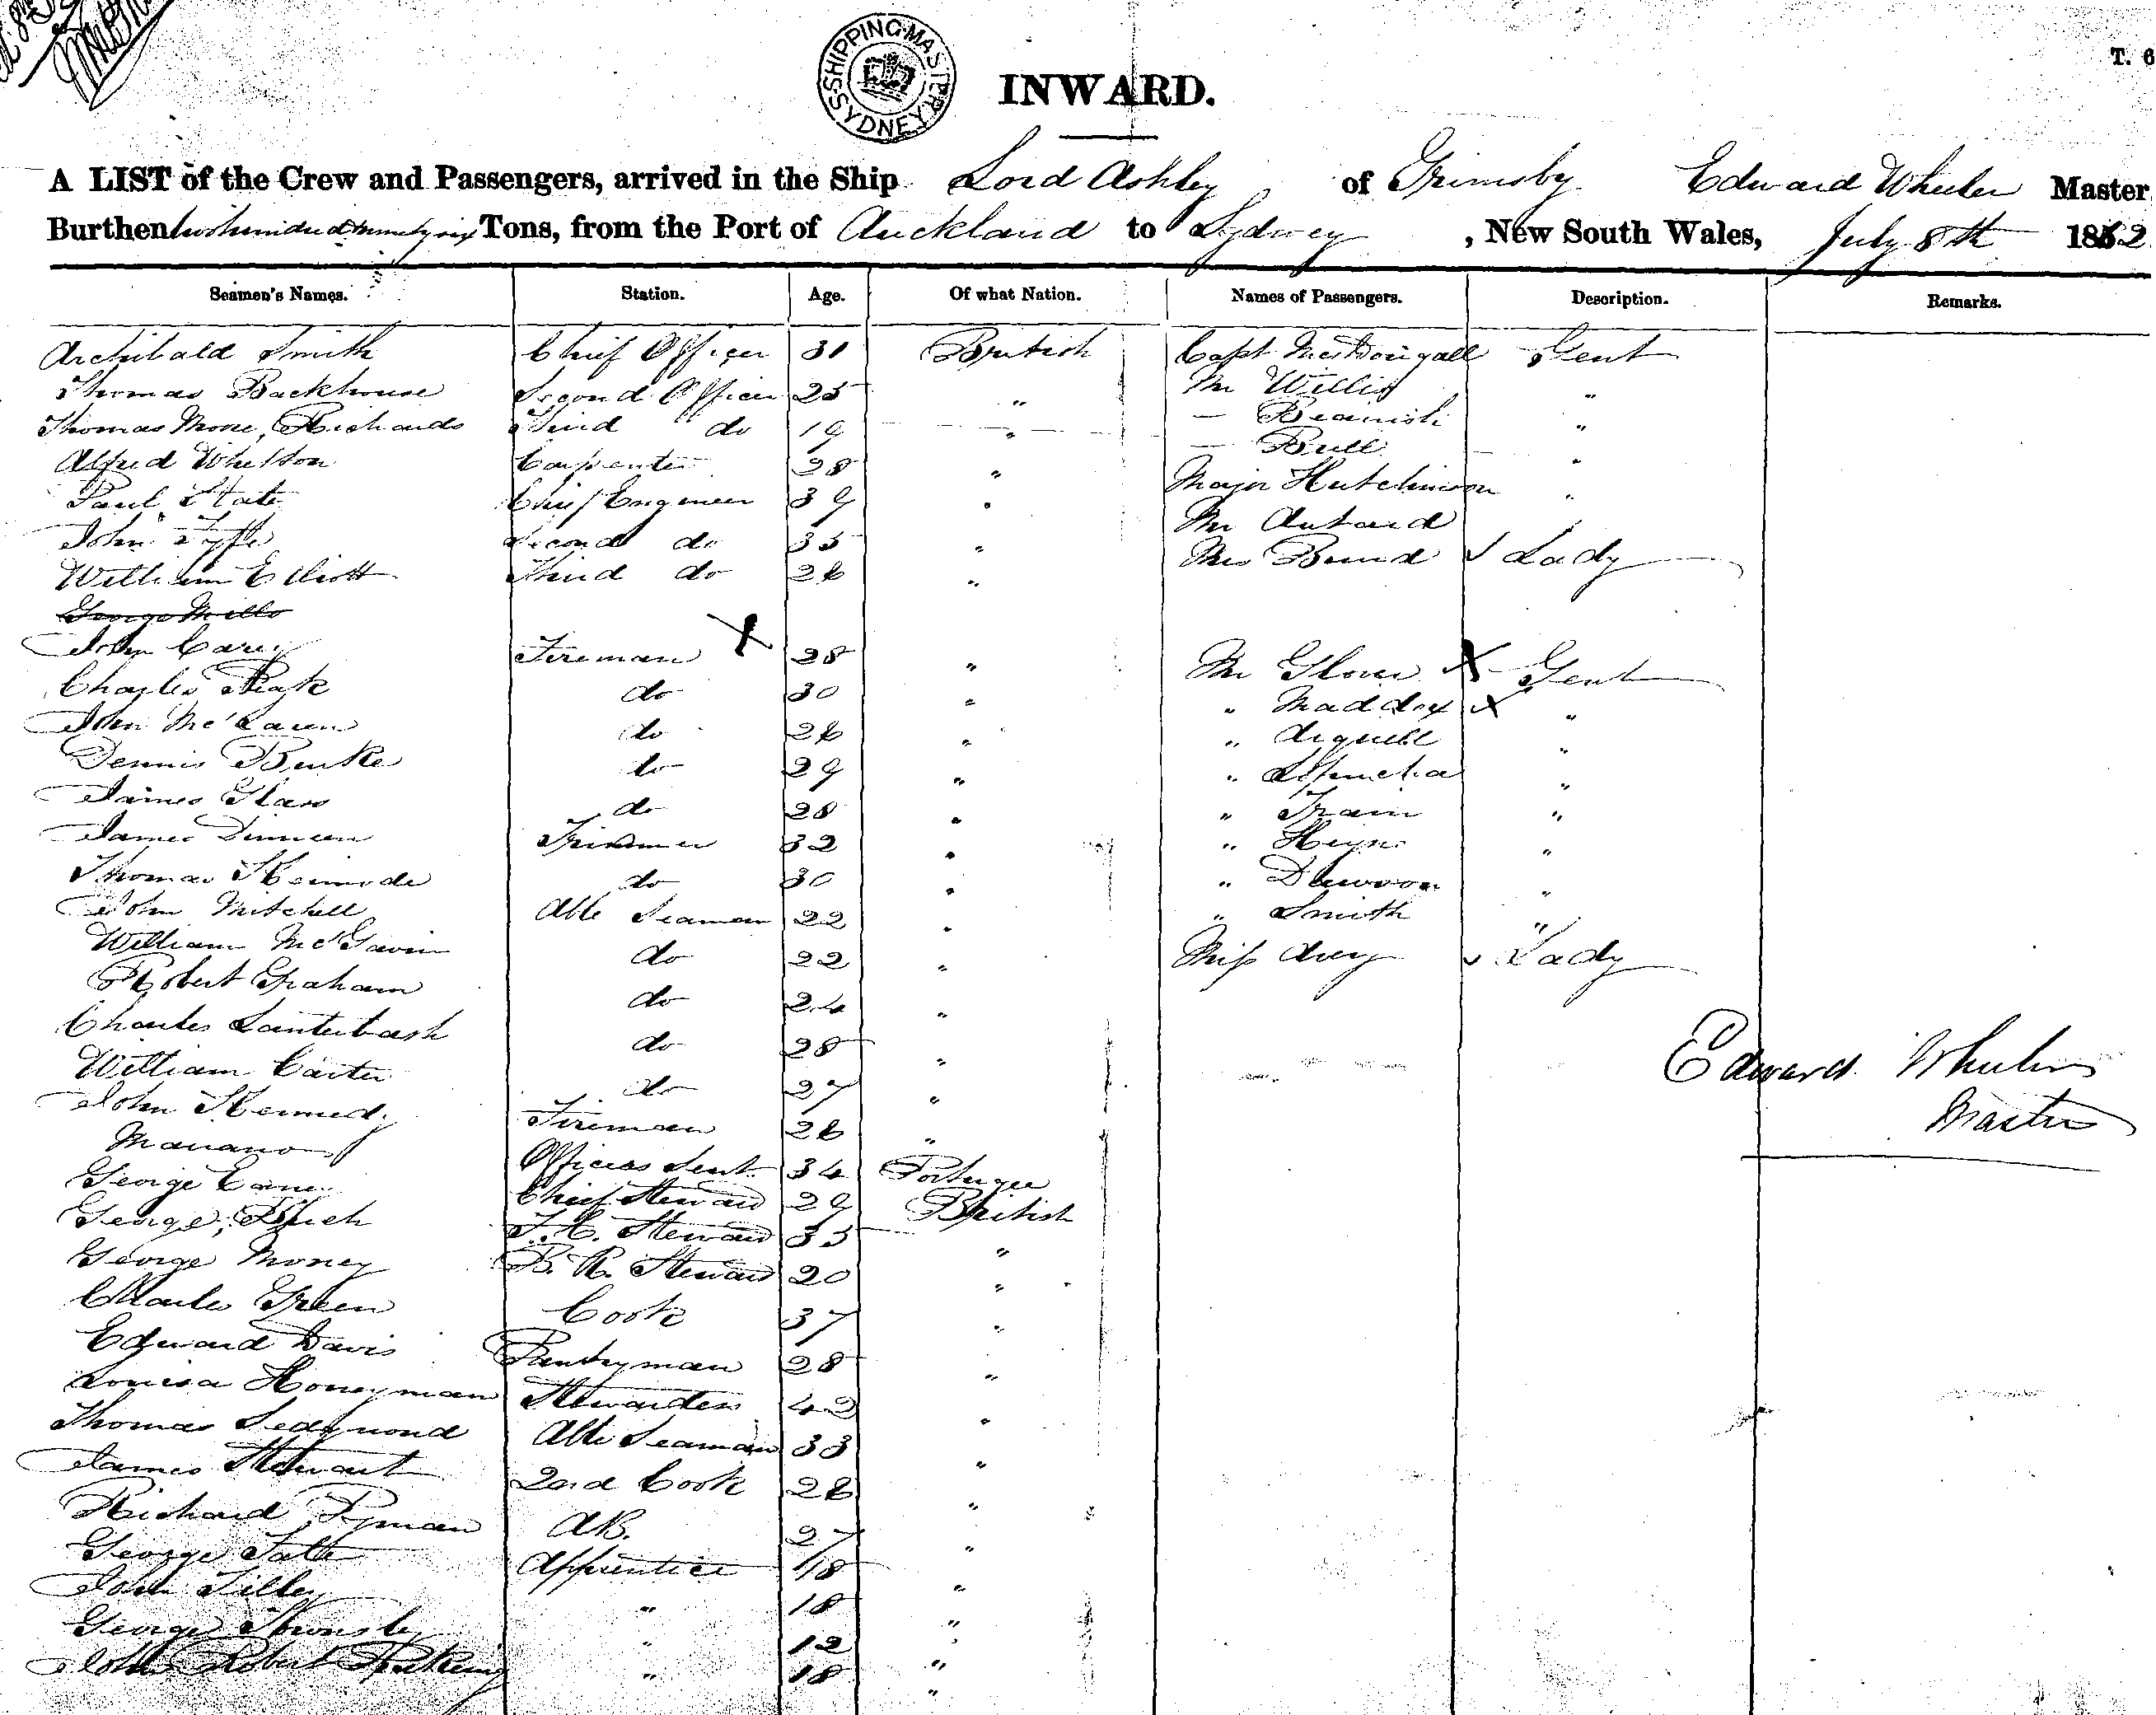 SHIPPING MASTER SYDNEY
T. 6
INWARD.
A LIST of the Crew and Passengers, arrived in the Ship Lord Ashley of Grimsby Edward Wheeler Master
Burthen two hundred ninety six Tons, from the Port of Auckland to Sydney, New South Wales, July 8th 1862
Seamen's Names. Station. Age. Of what Nation. Names of Passengers. Description. Remarks.
Archibald Smith Chief Officer 31 British Capt. MacDougall Gent
Thomas Backhouse Second Officer 25 " Mr Willis "
Thomas Richards Third do 19 " — Beamish "
Alfred Whetton Carpenter 28 " — Bull "
Paul State Chief Engineer 39 " Major Hutchinson "
John Fyffe Second do 35 " Mr
William Elliott Third do 26 " Mrs Lady
George Mills
John Carey Fireman X 28 " Mr Glover X Gent
Charles 30 " " Maddox X "
John McLaren do 26 " "
Dennis Burke do 29 " "
James Glass do 28 " " Train "
James Trimmer 32 " "
Thomas Kermode do 30 " "
John Mitchell Able Seaman 22 " " Smith "
William McGavin do 22 " Miss Lady
Robert Graham do 24 "
Charles Lauterbach do 28 "
William Carter do 27 "
John Kennedy Fireman 26 "
Mariano Officers Servt. 34 Portugee
George Chief Steward 29 British
George Steward 35 "
George Money B. R. Steward 20 "
Charles Green Cook 37 "
Edward Davis Pantryman 28 "
Louisa Honeyman Stewardess 42 "
Thomas Able Seaman 33 "
James Stewart 2nd Cook 26 "
Richard Pyman AB. 27 "
George Apprentice 18 "
John Tilley " 18 "
George " 12 "
John Robert " 18 "
Edward Wheeler
Master